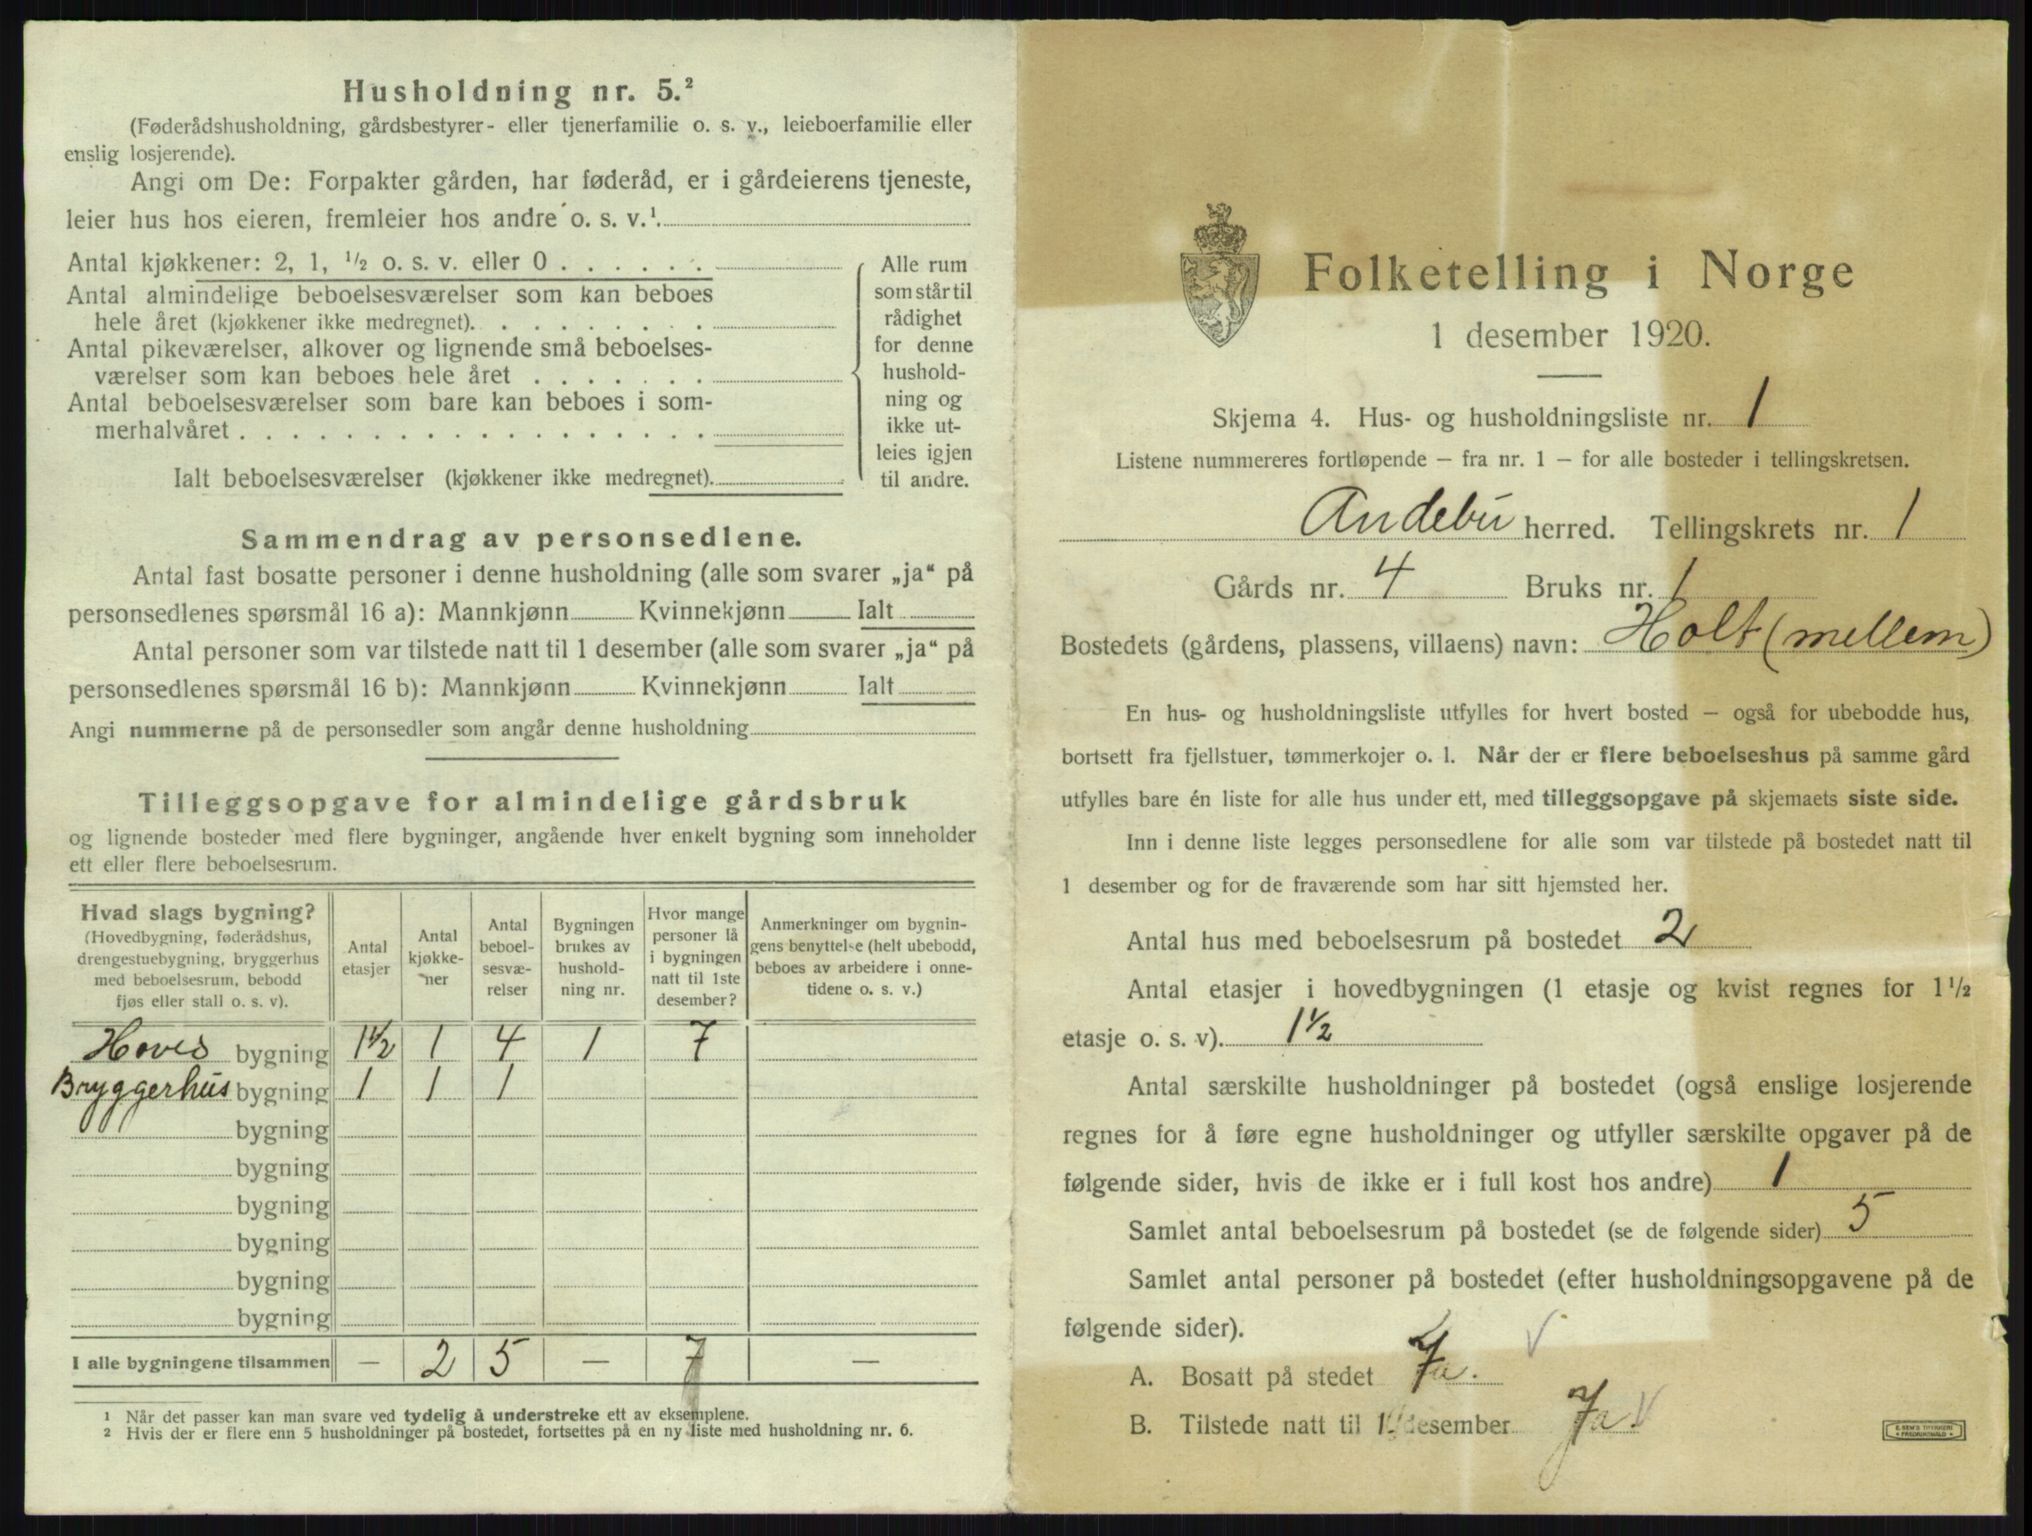 Husholdning nr. 5.²
(Føderådshusholdning, gårdsbestyrer- eller tjenerfamilie o. s. v., leieboerfamilie eller
enslig losjerende).
Angi om De: Forpakter gården, har føderåd, er i gårdeierens tjeneste,
leier hus hos eieren, fremleier hos andre o. s. v.¹.
Antal kjøkkener: 2, 1, ¹/₂ o. s. v. eller 0 . . . . . .
Antal almindelige beboelsesværelser som kan beboes
hele året (kjøkkener ikke medregnet). . . . . . . . .
Antal pikeværelser, alkover og lignende små beboelses-
værelser som kan beboes hele året . . . . . . .
Antal beboelsesværelser som bare kan beboes i som-
merhalvåret . . . . . . . . . . . . . . . . . .
Ialt beboelsesværelser (kjøkkener ikke medregnet).
Alle rum
som står til
rådighet
for denne
hushold-
ning og
ikke ut-
leies igjen
til andre.
Sammendrag av personsedlene.
Antal fast bosatte personer i denne husholdning (alle som svarer „ja“ på
personsedlenes spørsmål 16 a): Mannkjønn Kvinnekjønn Ialt
Antal personer som var tilstede natt til 1 desember (alle som svarer „ja“ på
personsedlenes spørsmål 16 b): Mannkjønn Kvinnekjønn Ialt
Angi nummerne på de personsedler som angår denne husholdning
Tilleggsopgave for almindelige gårdsbruk
og lignende bosteder med flere bygninger, angående hver enkelt bygning som inneholder
ett eller flere beboelsesrum.
Hvad slags bygning?
(Hovedbygning, føderådshus,
drengestuebygning, bryggerhus
med beboelsesrum, bebodd
fjøs eller stall o. s. v).
Antal
etasjer
Antal
kjøkke-
ner
Antal
beboel-
sesvæ-
relser
Bygningen
brukes av
hushold-
ning nr.
Hvor mange
personer lå
i bygningen
natt til 1ste
desember?
Anmerkninger om bygnin-
gens benyttelse (helt ubebodd,
beboes av arbeidere i onne-
tidene o. s. v.)
Hoved bygning 1½ 1 4 1 7
Bryggerhus bygning 1 1 1
bygning
bygning
bygning
bygning
bygning
bygning
I alle bygningene tilsammen — 2 5 — 7 —
¹ Når det passer kan man svare ved tydelig å understreke ett av eksemplene.
² Hvis der er flere enn 5 husholdninger på bostedet, fortsettes på en ny liste med husholdning nr. 6.
Folketelling i Norge
1 desember 1920.
Skjema 4. Hus- og husholdningsliste nr. 1
Listene nummereres fortløpende — fra nr. 1 — for alle bosteder i tellingskretsen.
Andebu herred. Tellingskrets nr. 1
Gårds nr. 4 Bruks nr. 1
Bostedets (gårdens, plassens, villaens) navn: Holt (mellem)
En hus- og husholdningsliste utfylles for hvert bosted — også for ubebodde hus,
bortsett fra fjellstuer, tømmerkojer o. l. Når der er flere beboelseshus på samme gård
utfylles bare én liste for alle hus under ett, med tilleggsopgave på skjemaets siste side.
Inn i denne liste legges personsedlene for alle som var tilstede på bostedet natt til
1 desember og for de fraværende som har sitt hjemsted her.
Antal hus med beboelsesrum på bostedet 2
Antal etasjer i hovedbygningen (1 etasje og kvist regnes for 1¹/₂
etasje o. s. v). 1½
Antal særskilte husholdninger på bostedet (også enslige losjerende
regnes for å føre egne husholdninger og utfyller særskilte opgaver på de
følgende sider, hvis de ikke er i full kost hos andre) 1
Samlet antal beboelsesrum på bostedet (se de følgende sider) 5
Samlet antal personer på bostedet (efter husholdningsopgavene på de
følgende sider).
A. Bosatt på stedet
B. Tilstede natt til 1 desember Ja